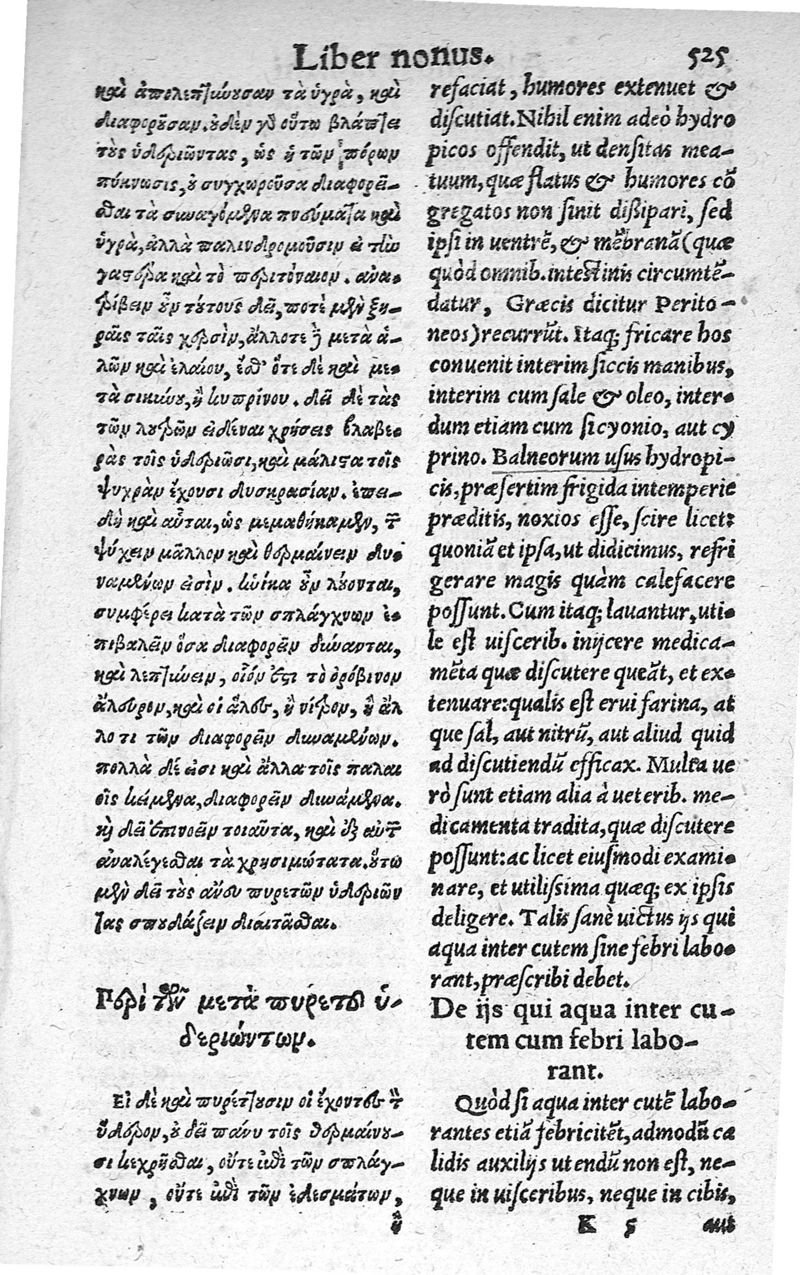 Liber nonus. 525
καὶ ἀπολεπτύνουσαν τὰ ὑγρὰ, καὶ
διαφοροῦσαν. οὐδὲν γὰρ οὕτω βλάπτει
τοὺς ὑδεριῶντας, ὡς ἡ τῶν πόρων
πύκνωσις, οὐ συγχωροῦσα διαφορεῖ-
σθαι τὰ συναγόμενα πνεύματα καὶ
ὑγρὰ, ἀλλὰ παλινδρομοῦσιν ἐπὶ τὴν
γαστέρα καὶ τὸ περιτόναιον. ἀνα-
τρίβειν οὖν τούτους δεῖ, ποτὲ μὲν ξη-
ραῖς ταῖς χερσὶν, ἄλλοτε δὲ μετὰ ἁ-
λῶν καὶ ἐλαίου, ἔσθ' ὅτε δὲ καὶ με-
τὰ σικυωνίου, ἢ κυπρίνου. δεῖ δὲ τὰς
τῶν λουτρῶν εἰδέναι χρήσεις βλαβε-
ρὰς τοῖς ὑδεριῶσι, καὶ μάλιστα τοῖς
ψυχρὰν ἔχουσι δυσκρασίαν. ἐπει-
δὴ καὶ αὗται, ὡς μεμαθήκαμεν, τοῦ
ψύχειν μᾶλλον καὶ θερμαίνειν δυ-
ναμένων εἰσίν. ἡνίκα οὖν λούονται,
συμφέρει κατὰ τῶν σπλάγχνων ἐ-
πιβαλεῖν ὅσα διαφορεῖν δύνανται,
καὶ λεπτύνειν, οἷόν ἐστι τὸ ὀρόβινον
ἄλευρον, καὶ οἱ ἅλες, ἢ νίτρον, ἢ ἄλ
λο τι τῶν διαφορεῖν δυναμένων.
πολλὰ δέ εἰσι καὶ ἄλλα τοῖς παλαι
οῖς κείμενα, διαφορεῖν δυνάμενα.
καὶ δεῖ ἐπινοεῖν τοιαῦτα, καὶ ἐξ αὐτῶν
ἀναλέγεσθαι τὰ χρησιμώτατα. οὕτω
μὲν δεῖ τοὺς ἄνευ πυρετῶν ὑδεριῶν
τας σπουδάζειν διαιτᾶσθαι.
Περὶ τῶν μετὰ πυρετοῦ ὑ-
δεριώντων.
Εἰ δὲ καὶ πυρέττουσιν οἱ ἔχοντες τὸν
ὕδερον, οὐ δεῖ πάνυ τοῖς θερμαίνου-
σι κεχρῆσθαι, οὔτε ἐπὶ τῶν σπλάγ-
χνων, οὔτε ἐπὶ τῶν ἐδεσμάτων,
ἢ
refaciat, humores extenuet &
discutiat. Nihil enim adeò hydro
picos offendit, ut densitas mea-
tuum, quæ flatus & humores cō
gregatos non sinit dissipari, sed
ipsi in uentrē, & mēbranā (quæ
quòd omnib. intestinis circumtē-
datur, Græcis dicitur Perito-
neos) recurrūt. Itaq; fricare hos
conuenit interim siccis manibus,
interim cum sale & oleo, inter-
dum etiam cum sicyonio, aut cy
prino. Balneorum usus hydropi-
cis, præsertim frigida intemperie
præditis, noxios esse, scire licet:
quoniā et ipsa, ut didicimus, refri
gerare magis quàm calefacere
possunt. Cum itaq; lauantur, uti-
le est uiscerib. inijcere medica-
mēta quæ discutere queāt, et ex-
tenuare: qualis est erui farina, at
que sal, aut nitrū, aut aliud quid
ad discutiendū efficax. Multa ue
rò sunt etiam alia à ueterib. me-
dicamenta tradita, quæ discutere
possunt: ac licet eiusmodi exami-
nare, et utilissima quæq; ex ipsis
deligere. Talis sanè uictus ijs qui
aqua inter cutem sine febri labo-
rant, præscribi debet.
De ijs qui aqua inter cu-
tem cum febri labo-
rant.
Quòd si aqua inter cutē labo-
rantes etiā febricitēt, admodū ca
lidis auxilijs utendū non est, ne-
que in uisceribus, neque in cibis,
K 5 aut